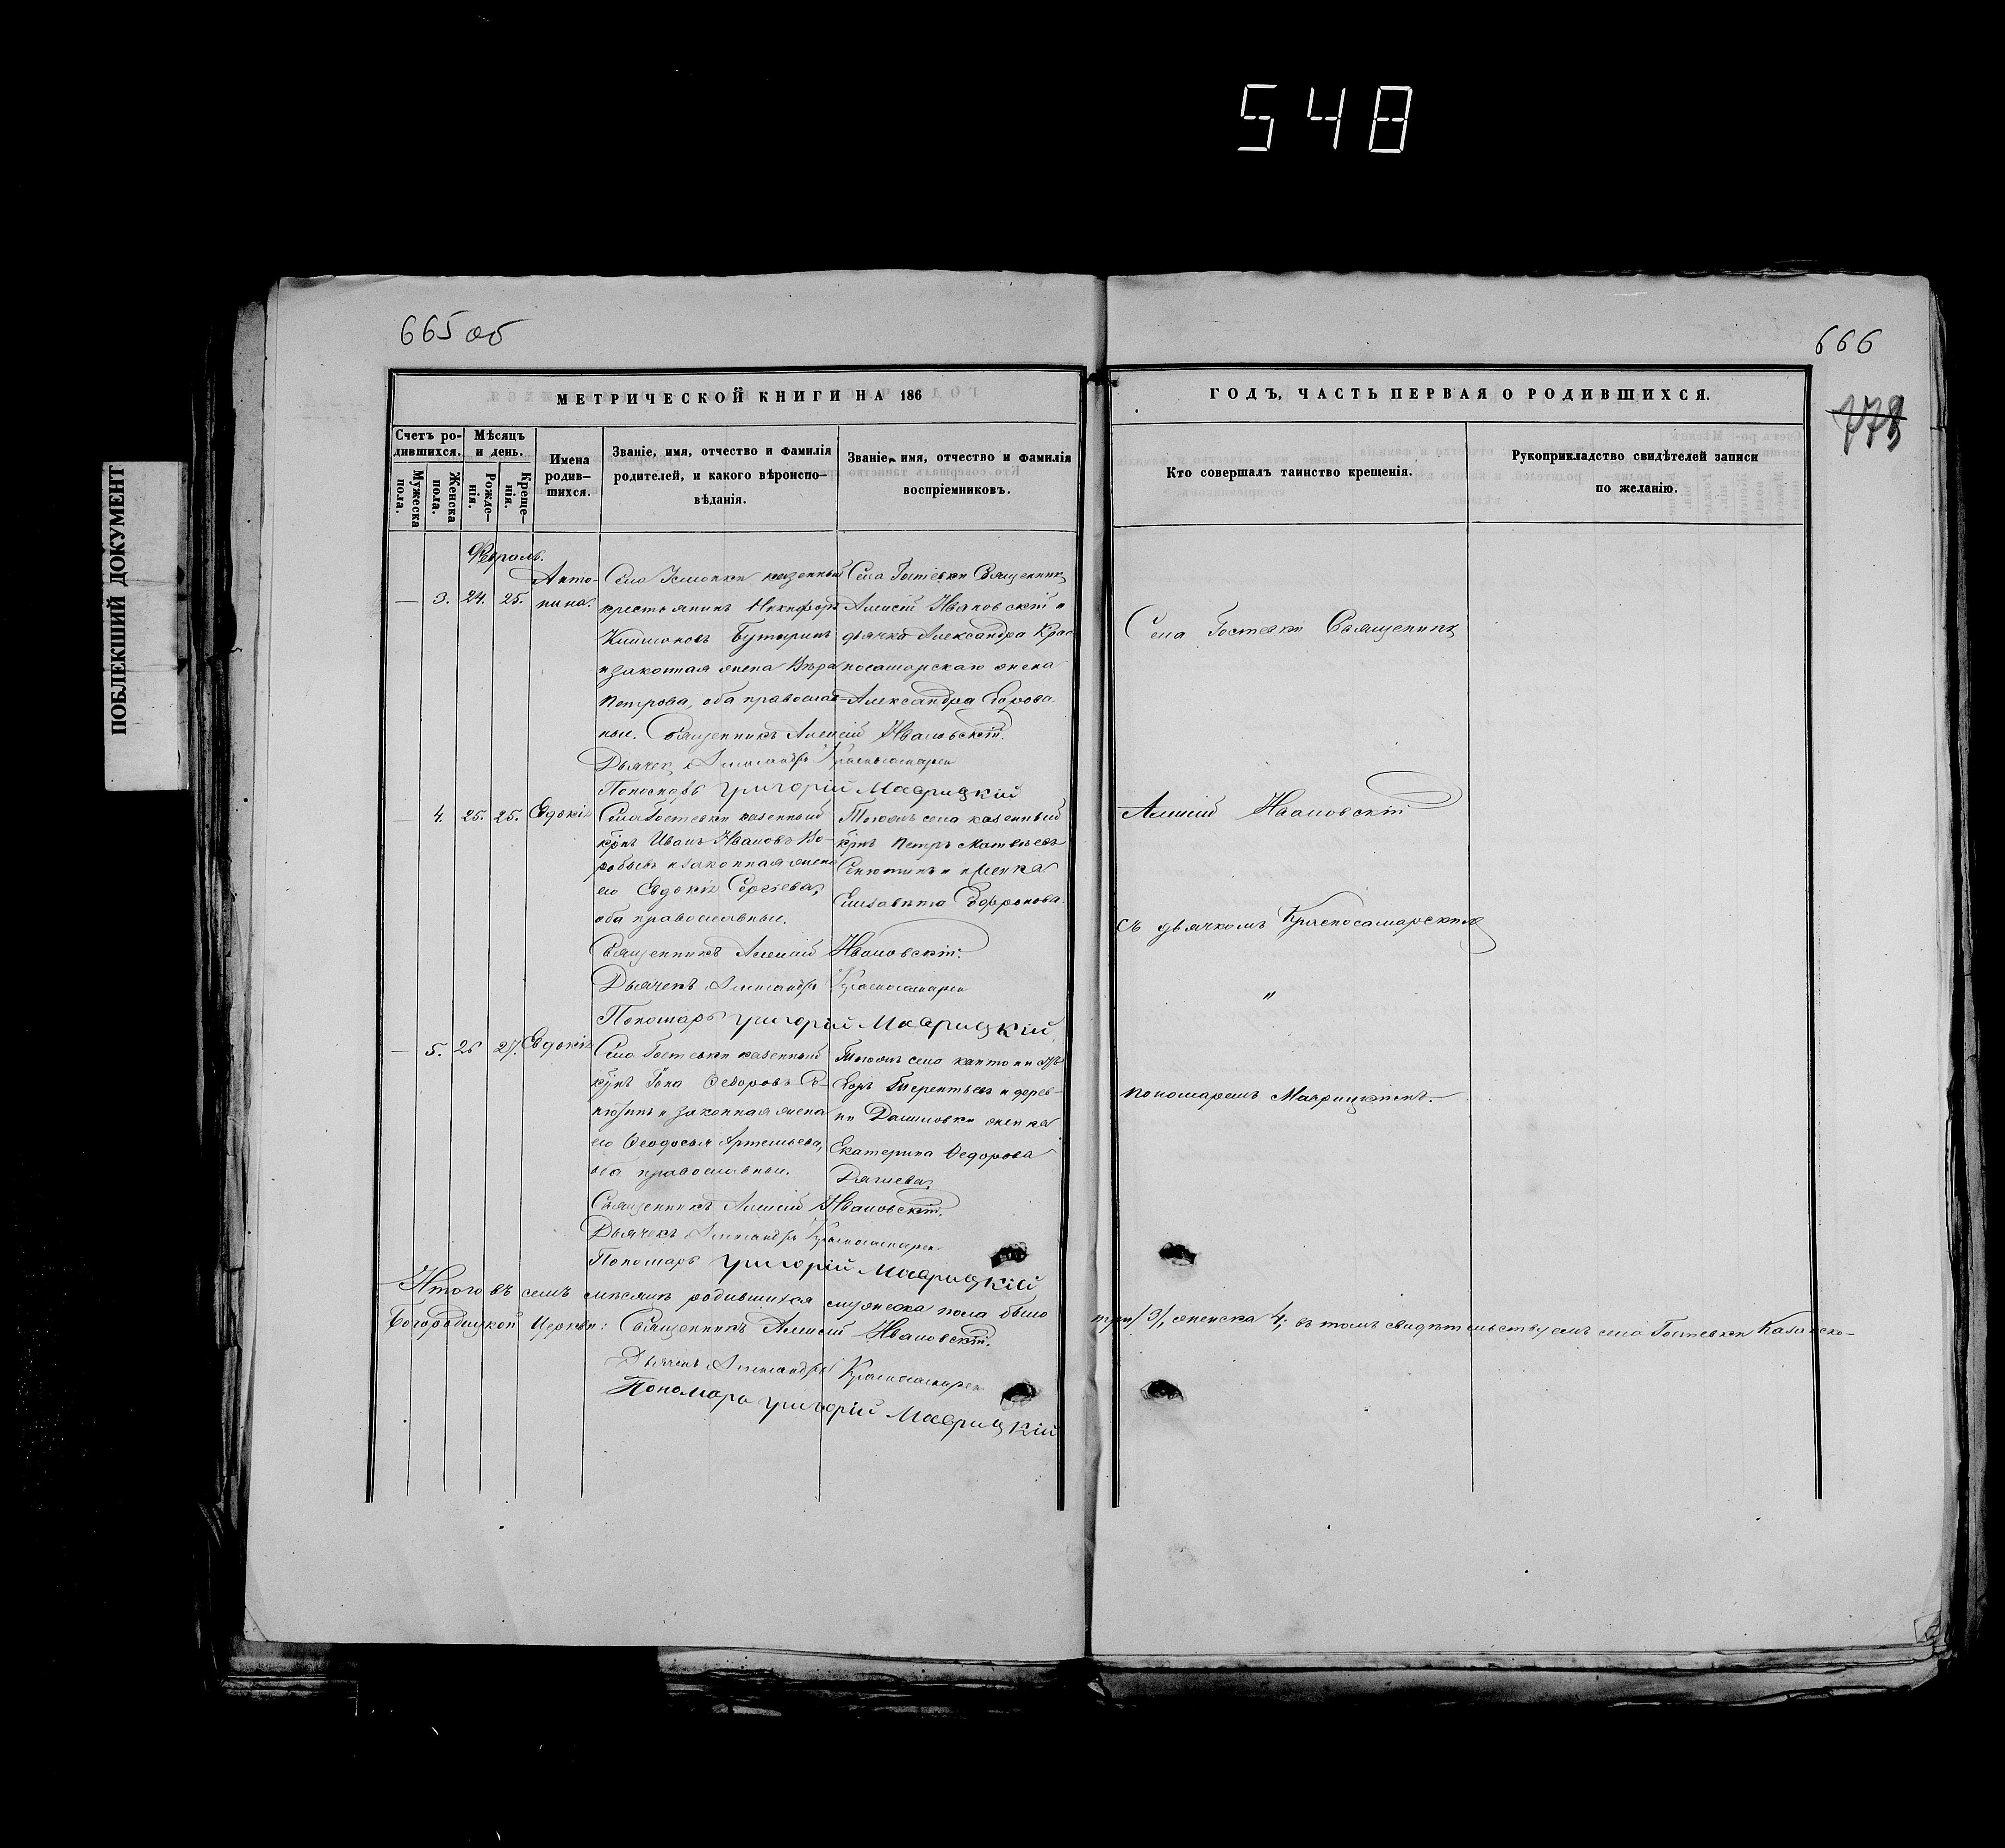 548
ПОБЛЕКШИЙ ДОКУМЕНТ
665 об
666
778
МЕТРИЧЕСКОЙ КНИГИ НА 186
ГОДЪ, ЧАСТЬ ПЕРВАЯ О РОДИВШИХСЯ.
Счетъ ро-
дившихся.
Мужеска
пола.
Женска
пола.
Мѣсяцъ
и день.
Рожде-
нія.
Креще-
нія.
Имена
родив-
шихся.
Званіе, имя, отчество и фамилія
родителей, и какого вѣроиспо-
вѣданія.
Званіе, имя, отчество и фамилія
воспріемниковъ.
Кто совершалъ таинство крещенія.
Рукоприкладство свидѣтелей записи
по желанію.
Февраль.
— 3. 24. 25.
Анто-
нина.
Село казенный
крестьянинъ Никифоръ
Бутыринъ
и законная жена Вѣра
Петрова, оба православ-
ные. Священникъ Алексій Ивановскій.
Дьячекъ Александръ Красносамарск
Пономарь Григорій Маврицкій
Села Гостевки Священникъ
Алексій Ивановскій и
дьячка Александра Крас
носамарскаго жена
Александра Егорова.
— 4. 25. 25. Евдокія
Села Гостевки казенный
крнъ Иванъ Ивановъ Во-
робьевъ и законная жена
его Евдокія Сергѣева,
оба православные.
Священникъ Алексій Ивановскій.
Дьячекъ Александръ Красносамарск
Пономарь Григорій Маврицкій
Тогожъ села казенный
крнъ Петръ Матвѣевъ
Сенютинъ и женка
Елизавета Софронова.
— 5. 26 27. Евдокія
Села Гостевки казенный
крнъ Іона Ѳедоровъ Се-
нютинъ и законная жена
его Ѳеодосья Артемьева,
оба православные.
Священникъ Алексій Ивановскій.
Дьячекъ Александръ Красносамарск
Пономарь Григорій Маврицкій
Тогожъ села
Егоръ Терентьевъ и дерев-
ни женка
Екатерина Ѳедорова
Села Гостевки Священникъ
Алексій Ивановскій
съ дьячкомъ Красносамарскимъ
"
пономаремъ Маврицкимъ.
Итого въ семъ мѣсяцѣ родившихся мужеска пола было три/3/, женска 4; въ томъ свидѣтельствуемъ села Гостевки Казанско-
Богородицкой Церкви: Священникъ Алексій Ивановскій.
Дьячекъ Александръ Красносамарск
Пономарь Григорій Маврицкій